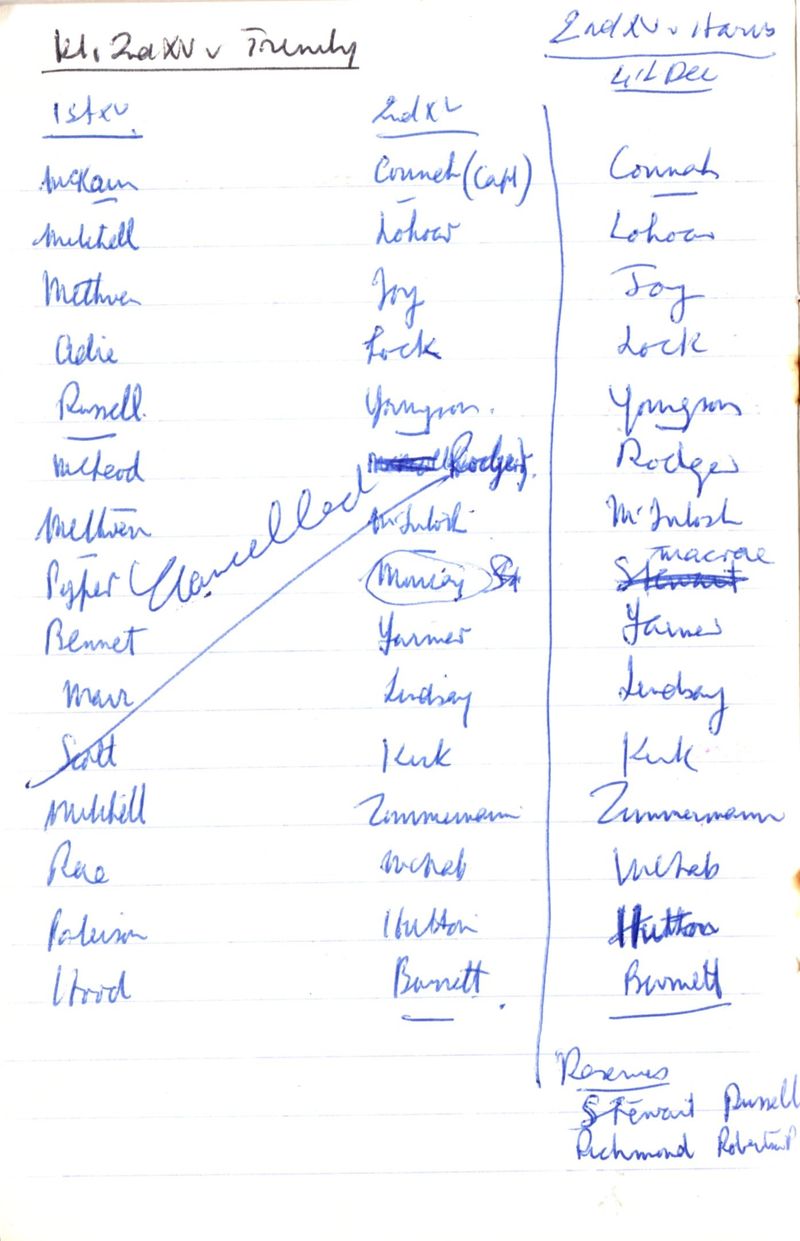 1st, 2nd XV v Trinity
1st XV.
McKain
Mitchell
Methven
Adie
Russell.
McLeod
Methven
Pyper
Bennet
Marr
Scott
Mitchell
Rae
Paterson
Hood
Cancelled
2nd XV
Connah (Capt)
Lohoar
Joy
Lock
Youngson.
Rodger.
McIntosh
Murray St
Yarmer
Lindsay
Kirk
Zimmermann
McNab
Hutton
Barnett
2nd XV v Harris
4th Dec
Connah
Lohoar
Joy
Lock
Youngson
Rodger
McIntosh
Macrae
Stewart
Yarmer
Lindsay
Kirk
Zimmermann
McNab
Hutton
Barnett
Reserves
Stewart Russell
Richmond Robertson P